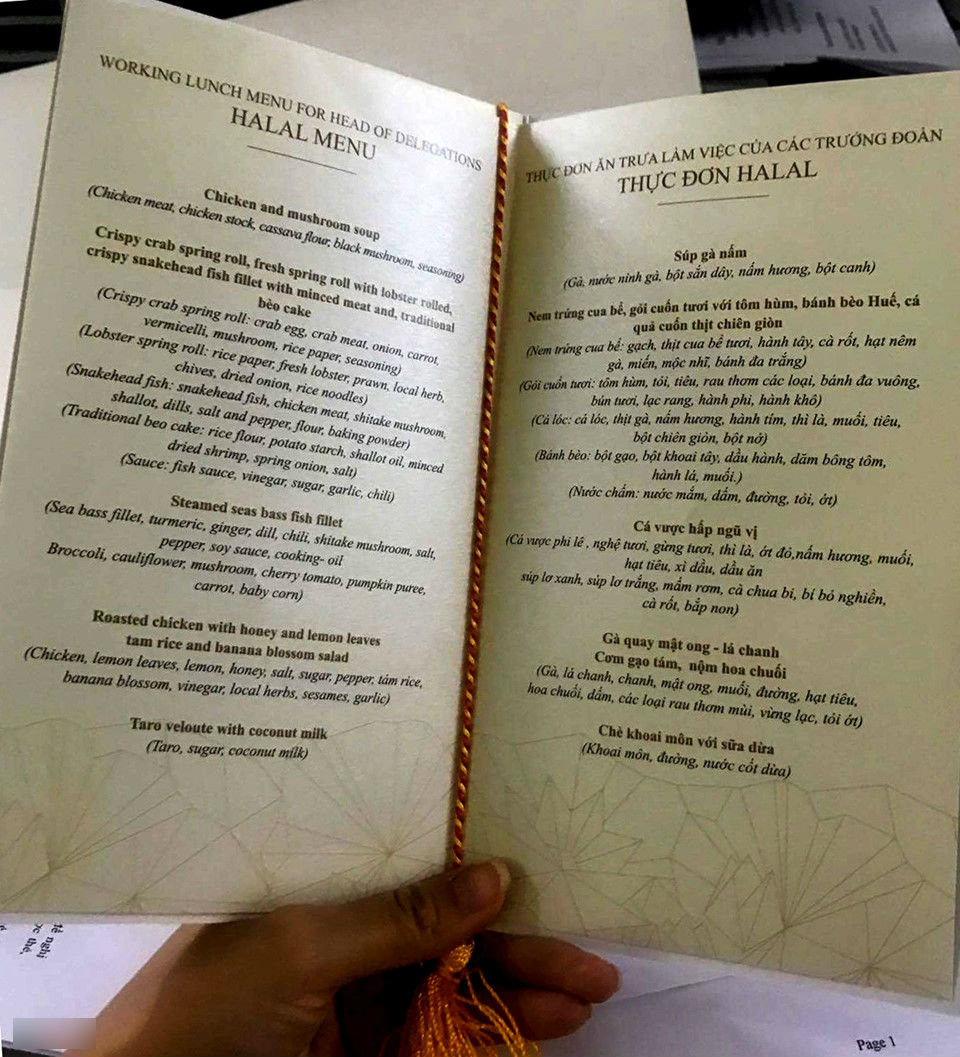 WORKING LUNCH MENU FOR HEAD OF DELEGATIONS
HALAL MENU
Chicken and mushroom soup
(Chicken meat, chicken stock, cassava flour, black mushroom, seasoning)
Crispy crab spring roll, fresh spring roll with lobster rolled,
crispy snakehead fish fillet with minced meat and, traditional
bèo cake
(Crispy crab spring roll: crab egg, crab meat, onion, carrot,
vermicelli, mushroom, rice paper, seasoning)
(Lobster spring roll: rice paper, fresh lobster, prawn, local herb,
chives, dried onion, rice noodles)
(Snakehead fish: snakehead fish, chicken meat, shitake mushroom,
shallot, dills, salt and pepper, flour, baking powder)
(Traditional beo cake: rice flour, potato starch, shallot oil, minced
dried shrimp, spring onion, salt)
(Sauce: fish sauce, vinegar, sugar, garlic, chili)
Steamed seas bass fish fillet
(Sea bass fillet, turmeric, ginger, dill, chili, shitake mushroom, salt,
pepper, soy sauce, cooking- oil
Broccoli, cauliflower, mushroom, cherry tomato, pumpkin puree,
carrot, baby corn)
Roasted chicken with honey and lemon leaves
tam rice and banana blossom salad
(Chicken, lemon leaves, lemon, honey, salt, sugar, pepper, tám rice,
banana blossom, vinegar, local herbs, sesames, garlic)
Taro veloute with coconut milk
(Taro, sugar, coconut milk)
THỰC ĐƠN ĂN TRƯA LÀM VIỆC CỦA CÁC TRƯỞNG ĐOÀN
THỰC ĐƠN HALAL
Súp gà nấm
(Gà, nước ninh gà, bột sắn dây, nấm hương, bột canh)
Nem trứng cua bể, gỏi cuốn tươi với tôm hùm, bánh bèo Huế, cá
quả cuốn thịt chiên giòn
(Nem trứng cua bể: gạch, thịt cua bể tươi, hành tây, cà rốt, hạt nêm
gà, miến, mộc nhĩ, bánh đa trắng)
(Gỏi cuốn tươi: tôm hùm, tỏi, tiêu, rau thơm các loại, bánh đa vuông,
bún tươi, lạc rang, hành phi, hành khô)
(Cá lóc: cá lóc, thịt gà, nấm hương, hành tím, thì là, muối, tiêu,
bột chiên giòn, bột nở)
(Bánh bèo: bột gạo, bột khoai tây, dầu hành, dăm bông tôm,
hành lá, muối.)
(Nước chấm: nước mắm, dấm, đường, tỏi, ớt)
Cá vược hấp ngũ vị
(Cá vược phi lê , nghệ tươi, gừng tươi, thì là, ớt đỏ,nấm hương, muối,
hạt tiêu, xì dầu, dầu ăn
súp lơ xanh, súp lơ trắng, mầm rơm, cà chua bi, bí bỏ nghiền,
cà rốt, bắp non)
Gà quay mật ong - lá chanh
Cơm gạo tám, nộm hoa chuối
(Gà, lá chanh, chanh, mật ong, muối, đường, hạt tiêu,
hoa chuối, dấm, các loại rau thơm mùi, vừng lạc, tỏi ớt)
Chè khoai môn với sữa dừa
(Khoai môn, đường, nước cốt dừa)
Page 1